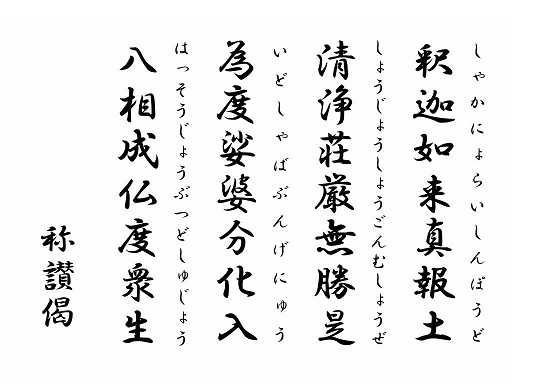 釈迦如来真報土
しゃかにょらいしんぽうど
清浄荘厳無勝是
しょうじょうしょうごんむしょうぜ
為度娑婆分化入
いどしゃばぶんげにゅう
八相成仏度衆生
はっそうじょうぶつどしゅじょう
称讃偈